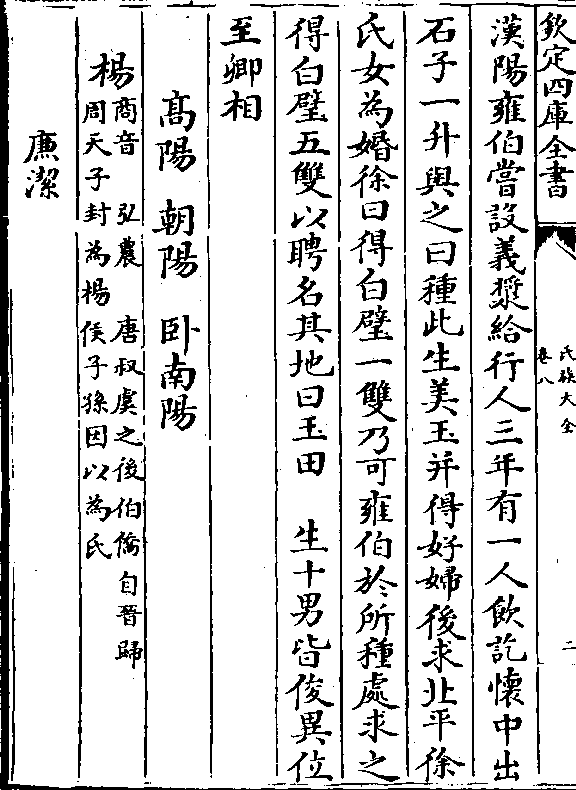 欽定四庫全書
氏族大全
卷八
二
漢陽雍伯嘗設義漿給行人三年有一人飲訖懷中出
石子一升與之曰種此生美玉并得好婦後求北平徐
氏女為婚徐曰得白璧一雙乃可雍伯於所種處求之
得白璧五雙以聘名其地曰玉田 生十男皆俊異位
至卿相
高陽 朝陽 卧南陽
楊 商音 弘農 唐叔虞之後伯僑自晉歸
周天子封為楊侯子孫因以為氏
廉潔